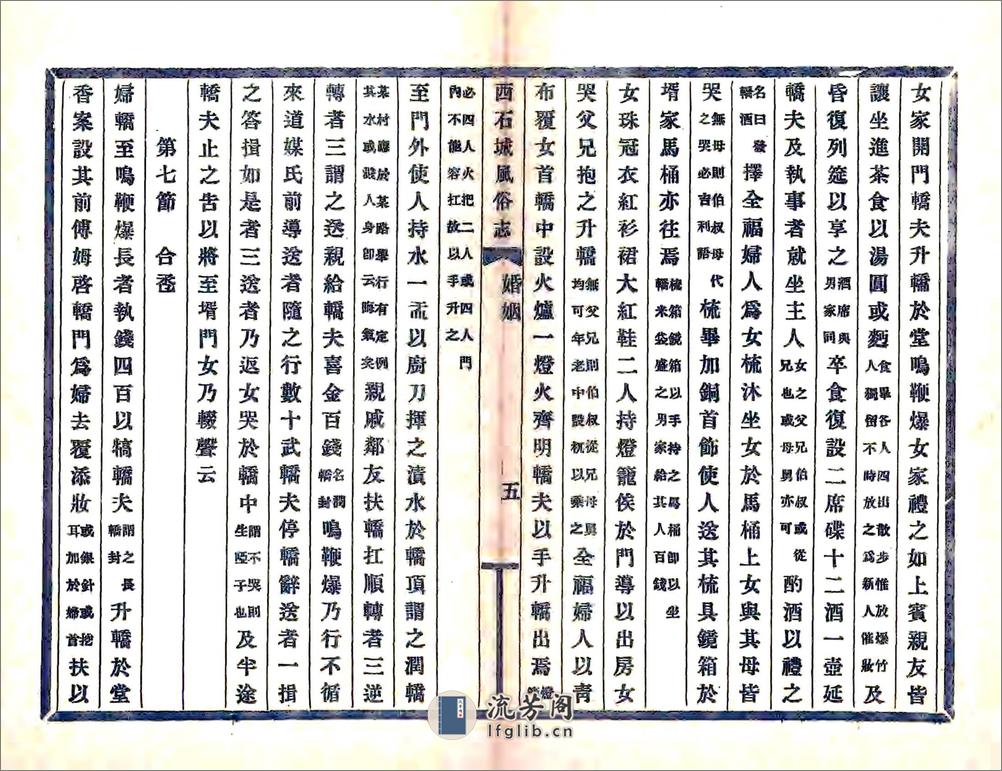 女家開門轎夫升轎於堂鳴鞭爆女家禮之如上賓親友皆
讓坐進茶食以湯圓或麪食畢各人四出散步惟放爆竹人獨留不時放之爲新人催妝及
昏復列筵以享之酒席與男家同卒食復設二席碟十二酒一壺延
轎夫及執事者就坐主人女之父兄伯叔或從兄也或母舅亦可酌酒以禮之
名曰發轎酒擇全福婦人爲女梳沐坐女於馬桶上女與其母皆
哭無母則伯叔母代之哭必吉利語梳畢加銅首飾使人送其梳具鏡箱於
壻家馬桶亦往焉梳箱鏡箱以手持之馬桶卽以坐轎米袋盛之男家給其人百錢
女珠冠衣紅衫裙大紅鞋二人持燈籠俟於門導以出房女
哭父兄抱之升轎無父兄則伯叔從兄母舅均可年老中設杌以乘之全福婦人以靑
布覆女首轎中設火爐一燈火齊明轎夫以手升轎出焉燈籠
西石城風俗志 婚姻 五
必四人火把二人或四人門內不能容扛故以手升之
至門外使人持水一盂以廚刀揮之漬水於轎頂謂之潤轎
某村離於某路舉行有定例其水或濺人身卽云晦氣矣親戚鄰友扶轎扛順轉者三逆
轉者三謂之送親給轎夫喜金百錢名潤轎封鳴鞭爆乃行不循
來道媒氏前導送者隨之行數十武轎夫停轎辭送者一揖
之答揖如是者三送者乃返女哭於轎中謂不哭則生啞子也及半途
轎夫止之告以將至壻門女乃輟聲云
第七節 合卺
婦轎至鳴鞭爆長者執錢四百以犒轎夫謂之長轎封升轎於堂
香案設其前傅姆啓轎門爲婦去覆添妝或銀針或挖耳加於婦首扶以
流芳閣
lfglib.cn